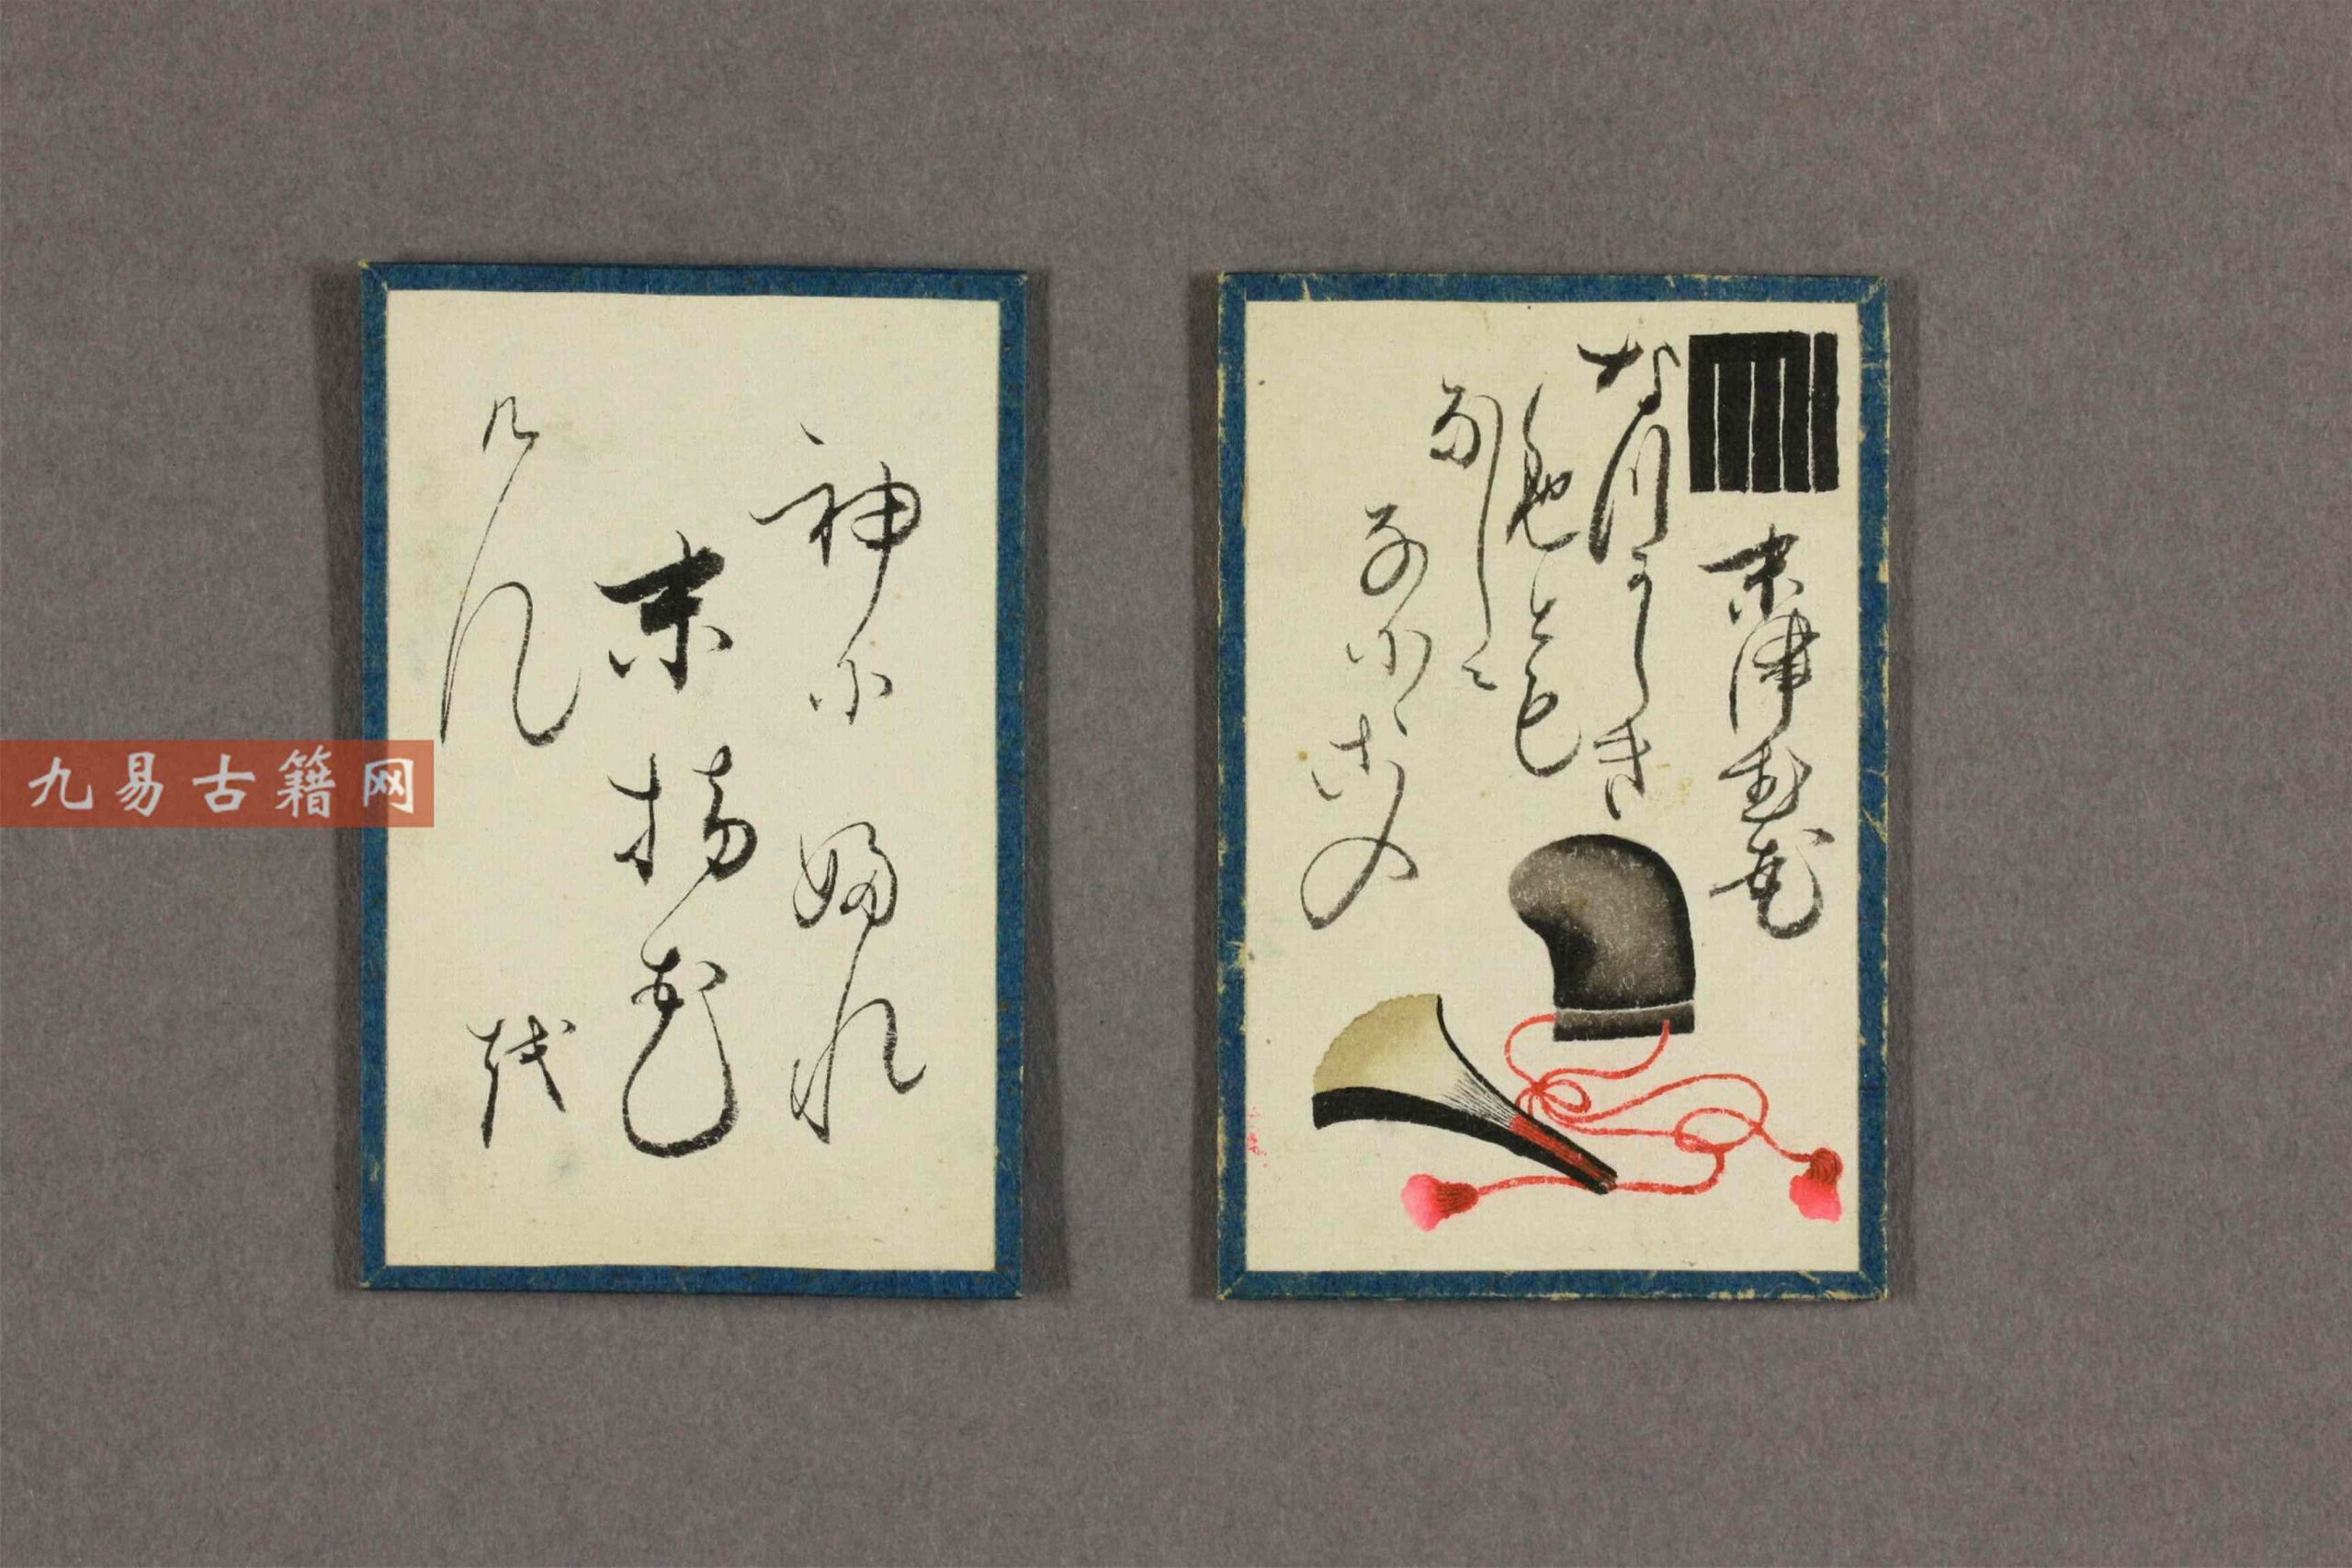 末津む花
なつかしき
色とも
なしに
なにゝこの
袖に ふれ
末摘花
けん を
九易古籍网